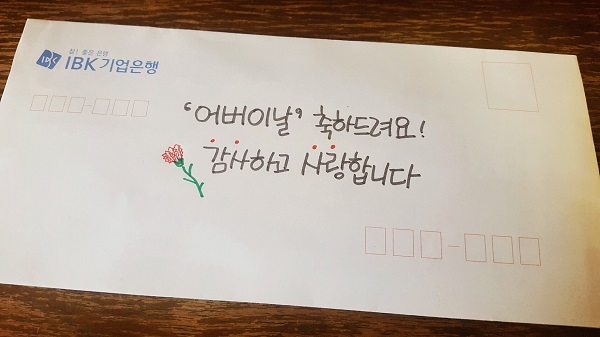 참! 좋은 은행
IBK 기업은행
‘어버이날’ 축하드려요!
감사하고 사랑합니다